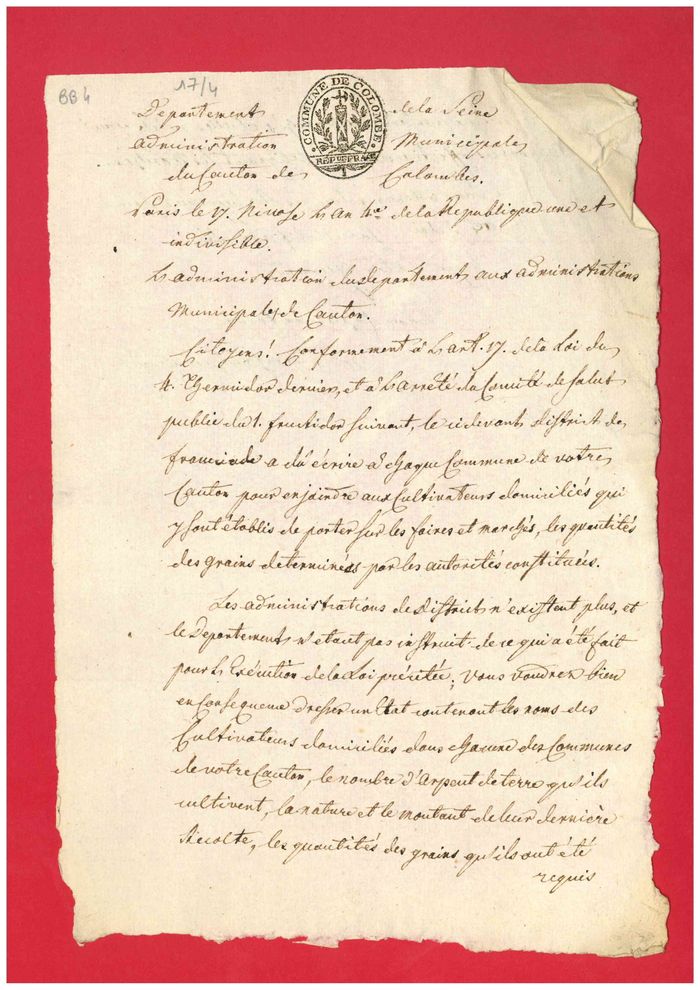 BB 4
17/4
COMMUNE DE COLOMBE
REP. FRAN.
Departement de la Seine
administration Municipale
du Canton de Colombes.
Paris le 17. Nivose L'an 4.e de la Republique une et
indivisible.
L'administration du departement aux administrations
Municipales de Canton.
Citoyens! Conformement à L'art. 17. de la Loi du
4. Thermidor dernier, et à L'arrêté du Comité de Salut
public du 1. fructidor Suivant, le cidevant district de
franciade a dû écrire à chaque Commune de votre
Canton pour enjoindre aux Cultivateurs domiciliés qui
y sont établis de porter sur les foires et marchés, les quantités
des grains determinées par les autorités constituées.
Les administrations de district n'existent plus, et
le Departement n'etant pas instruit de ce qui a été fait
pour L'Exécution de la Loi précitée; vous voudrez bien
en Consequence dresser un Etat contenant les noms des
Cultivateurs domiciliés dans chacune des Communes
de votre Canton, le nombre d'Arpent de terre qu'ils
cultivent, la nature et le montant de leur dernière
Récolte, les quantités des grains qu'ils ont été
requis